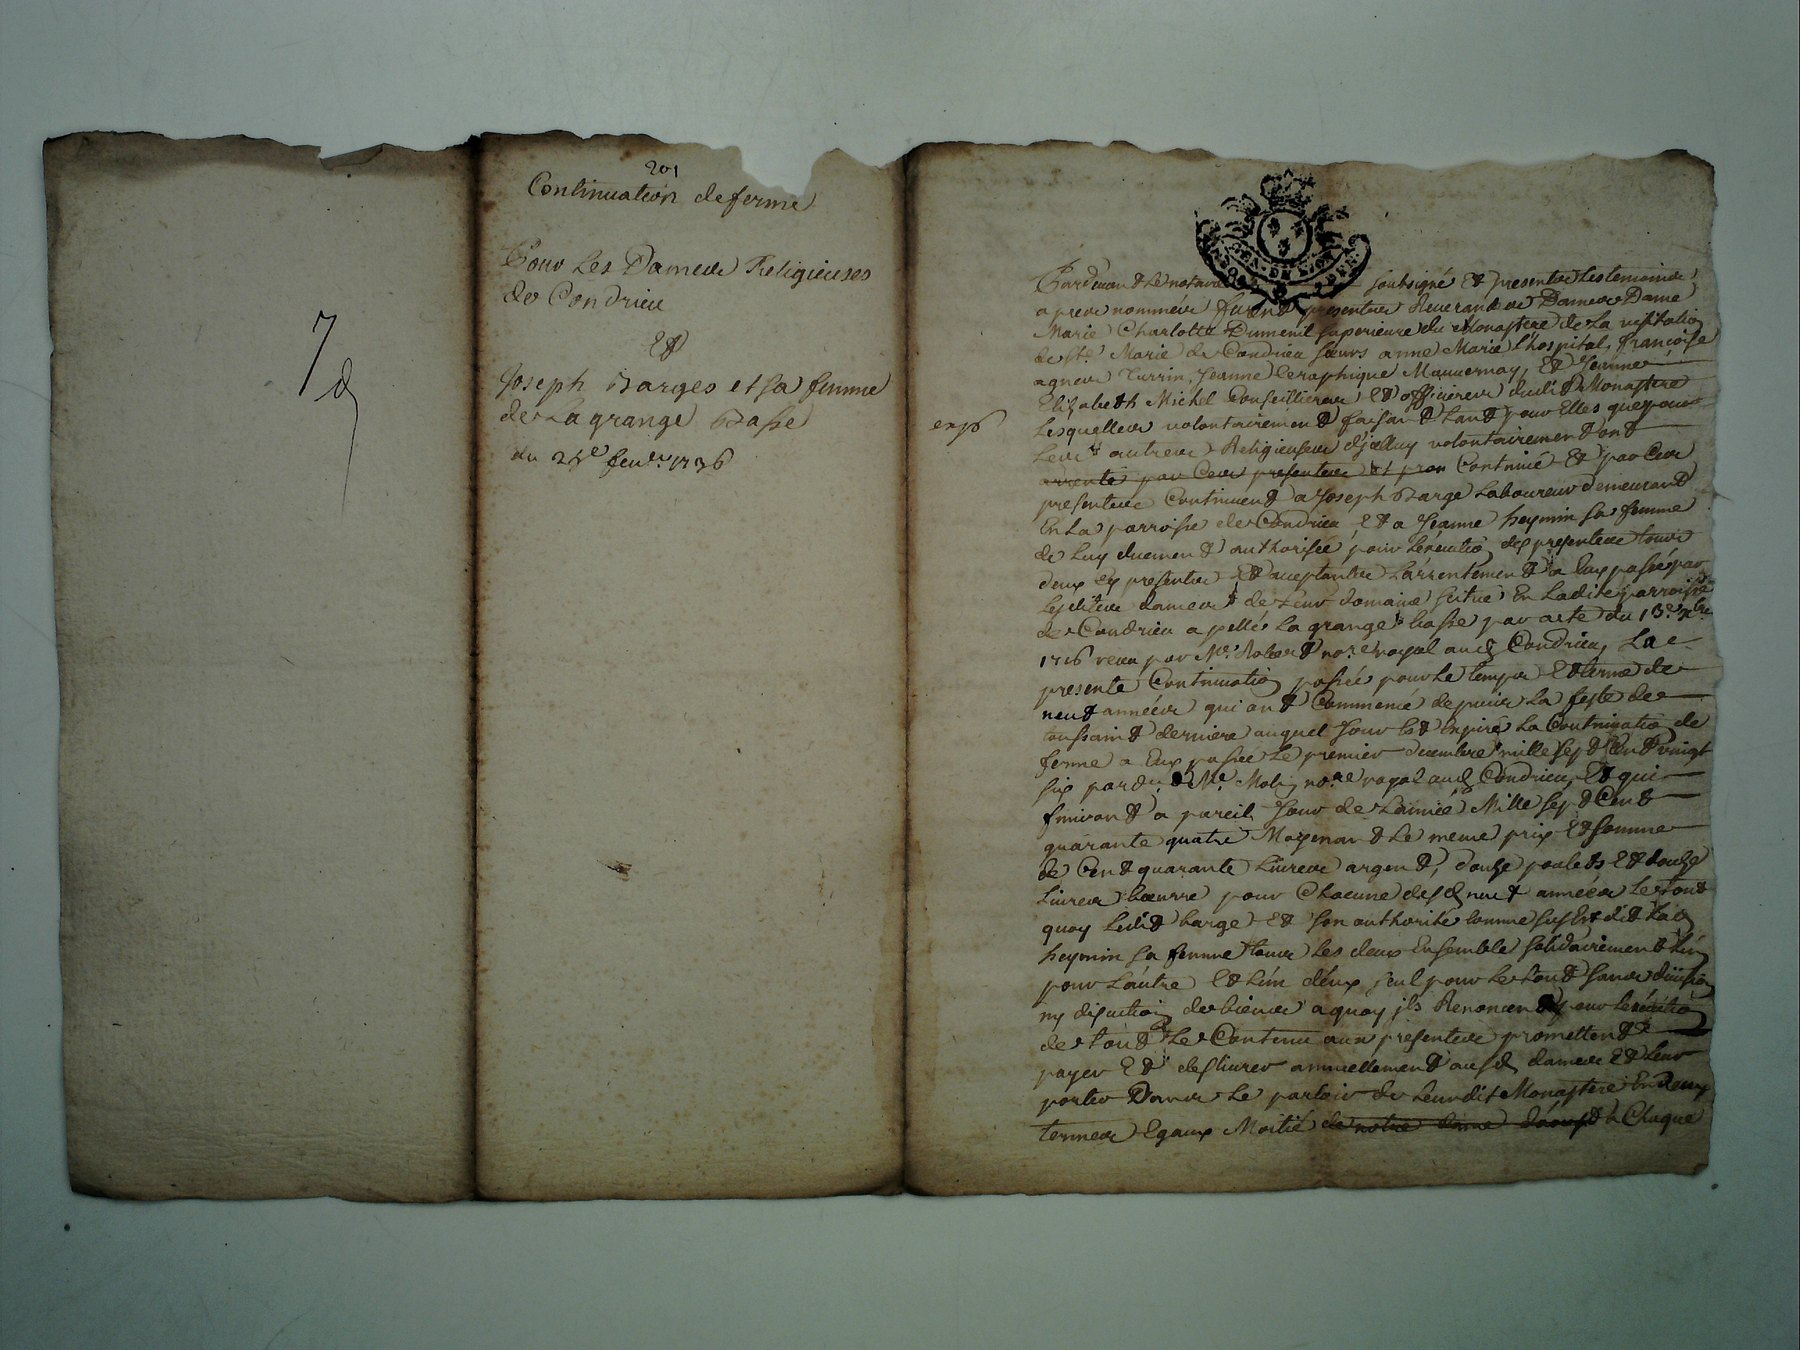 7
201
Continuation de ferme
Pour Les Dames Religieuses
de Condrieu
Et
Joseph Barges et sa femme
de La grange Basse
du 25e feur. 1736
exp
Pardevant Le notaire soubsigné Et presentes Les temoins
apres nommés furent presentes Reuerandes Dames Dame
Marie Charlotte Dumenil superieure du Monastere de La visitation
de Ste Marie de Condrieu sœurs anne Marie L'hospital, françoise
agnes Turrin, Jeanne Ceraphique Mauuernay, Et Jeanne
Elizabeth Michel Conseillieres Et officieres dudit Monastere
Lesquelles volontairement faisant tant pour Elles que pour
Leurs autres Religieuses volontairement ont
arrenté par Ces presentes et Continué Et par Ces
presentes Continuent a Joseph Barge Laboureur demeurant
En La parroisse de Condrieu Et a Jeanne heymin sa femme
de Luy duement authorisée pour L'éxecution des presentes tous
deux presents Et acceptants L'arrentement a Eux passé par
Lesdites dames de Leur domaine situé En Ladite parroisse
de Condrieu apellé La grange basse par acte du 13e
1716 receu par Me Robert nore royal aud Condrieu, La
presente Continuation passée pour Le temps Et terme de
neuf années qui ont Commencé depuis La feste de
toussaint derniere auquel Jour Est Expiré La Continuation de
ferme a Eux passée Le premier decembre mille sept Cent vingt
six pardt Me nore royal aud Condrieu, Et qui
finiront a pareil Jour de L'année Mille sept Cent
quarante quatre Moyenant Le meme prix Et somme
de Cent quarante Liures argent, douze poulets Et douze
Liures bœurre pour Chacune desd neuf années Le tout
quoy Ledit barge Et son authorité comme sus Est dit Lad
heymin sa femme tous Les deux Ensemble solidairement L'un
pour L'autre Et L'un d'eux seul pour Le tout sans diuision
ny discution de biens a quoy ils Renoncent pour L'éxecution
de tout Le Contenu aux presentes promettent
payer Et desliurer annuellement ausd dames Et Leur
porter Dans Le parloir de Leurdit Monastere En Deux
termes Egaux Moitié de notre dame d'aoust a Chaque